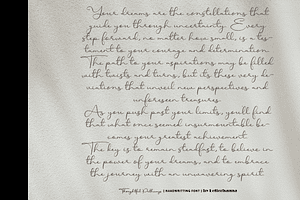 Your dreams are the constellations that
guide you through uncertainty. Every
step forward, no matter how small, is a tes-
tament to your courage and determination.
The path to your aspirations may be filled
with twists and turns, but its these very de-
viations that unveil new perspectives and
unforeseen treasures.
As you push past your limits, you'll find
that what once seemed insurmountable be-
comes your greatest achievement
The key is to remain steadfast, to believe in
the power of your dreams, and to embrace
the journey with an unwavering spirit.
| HANDWRITTING FONT | by